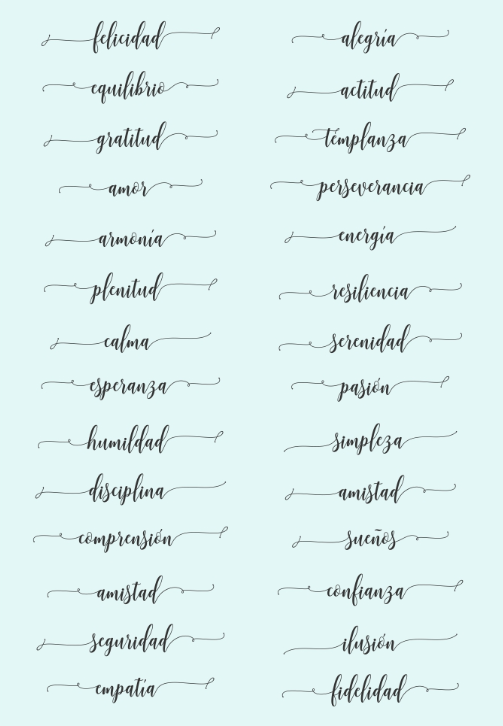 felicidad
equilibrio
gratitud
amor
armonía
plenitud
calma
esperanza
humildad
disciplina
comprensión
amistad
seguridad
empatía
alegría
actitud
templanza
perseverancia
energía
resiliencia
serenidad
pasión
simpleza
amistad
sueños
confianza
ilusión
fidelidad